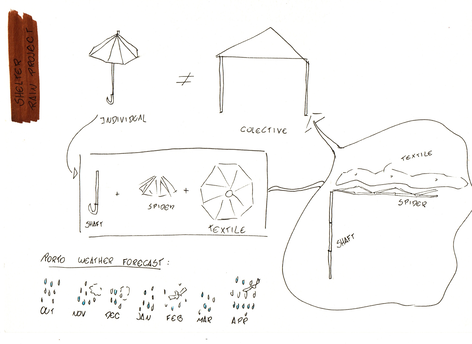 SHELTER
RAIN PROJECT
INDIVIDUAL
≠
COLECTIVE
SHAFT
+
SPIDER
+
TEXTILE
TEXTILE
SPIDER
SHAFT
PORTO WEATHER FORECAST:
OUT NOV DEC JAN FEB MAR APR